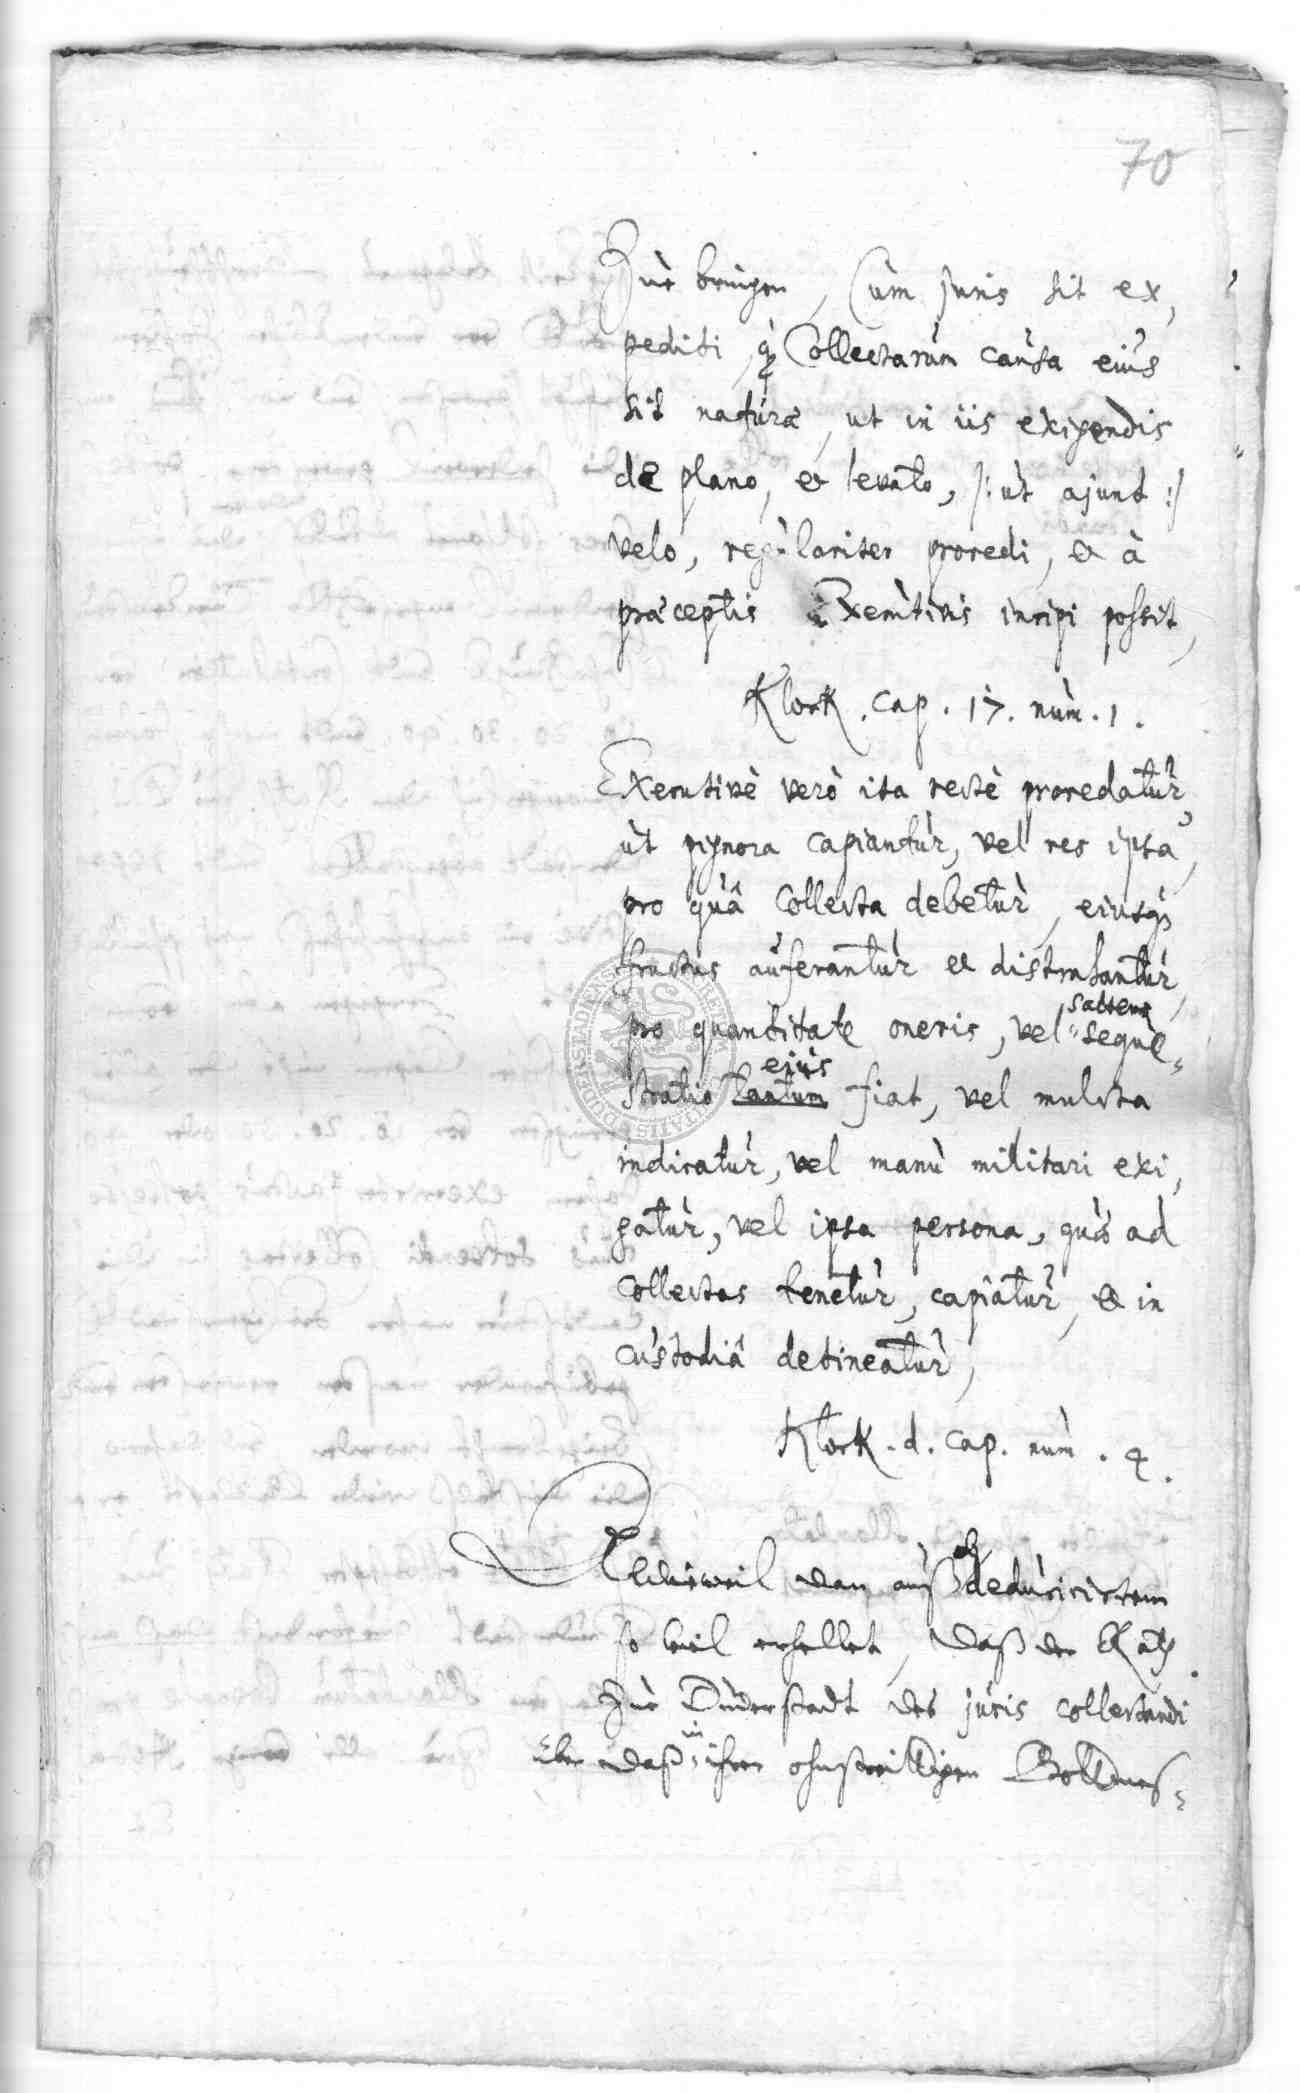 70
Zur bringen, Cùm juris sit ex,
pediti, q. Collectarùm caùsa eiùs
sit naturæ, ut in iis exigendis
de plano, et levato, /: ùt ajunt :/
velo, regùlariter procedi, et à
præceptis Execùtivis incipi possit,
Klock. cap. 17. nùm. 1.
Executivè verò ita rectè procedatùr,
ùt pignora capiantùr, vel res ipsa,
pro qùâ Collecta debetùr, eiusq3
fructus aùferantùr et distrahantùr,
saltem
pro quantitate oneris, vel seque-
ejùs
stratio tantum fiat, vel mulcta
indicatùr, vel manù militari exi,
gatùr, vel ipsa persona, quæ ad
Collectas tenetùr, capiatùr, et in
cùstodiâ detineatùr,
Klock. d. cap. nùm. 4.
Alldieweil dan aùß deducirtem
so viel erhellet, daß der Rath
Zùr Dùderstadt des jùris collectandi
in
über daß ihrer ohnstreittigen